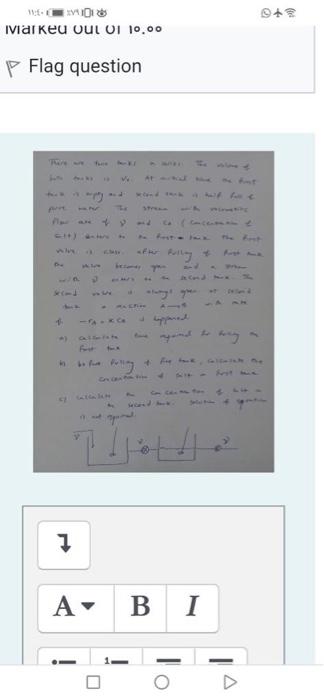 Marked out of 10.00
Flag question
There are two tanks in series. The volume of
both tanks is V₀. At initial time the first
tank is empty and second tank is half full of
pure water. The stream with volumetric
flow rate of v̇ and C₀ (concentration of
salt) enters to the first tank the first
valve is close. after fulling of first tank
the valve becomes open and a stream
with v̇ enters to the second tank. The
second valve is always open at second
tank a reaction with rate
of -rₐ = K Cₐ is happened.
a) calculate time required for fulling the
first tank
b) before fulling of first tank, calculate the
concentration of salt in first tank
c) calculate the concentration of salt in
the second tank. solution of equation
is not required.
A B I